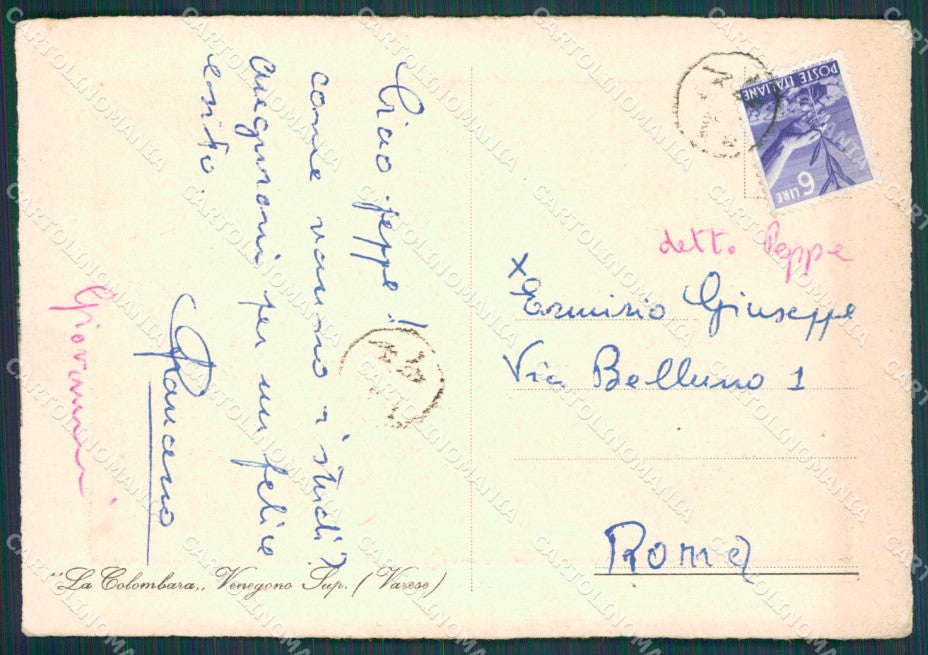 Ciao Peppe!
come vanno i studi?
Auguroni per un felice
esito.
Giovanni
detto Peppe
x Erminio Giuseppe
Via Belluno 1
Roma
"La Colombara,, Venegono Sup. (Varese)
POSTE ITALIANE
6 LIRE
CARTOLINOMANIA